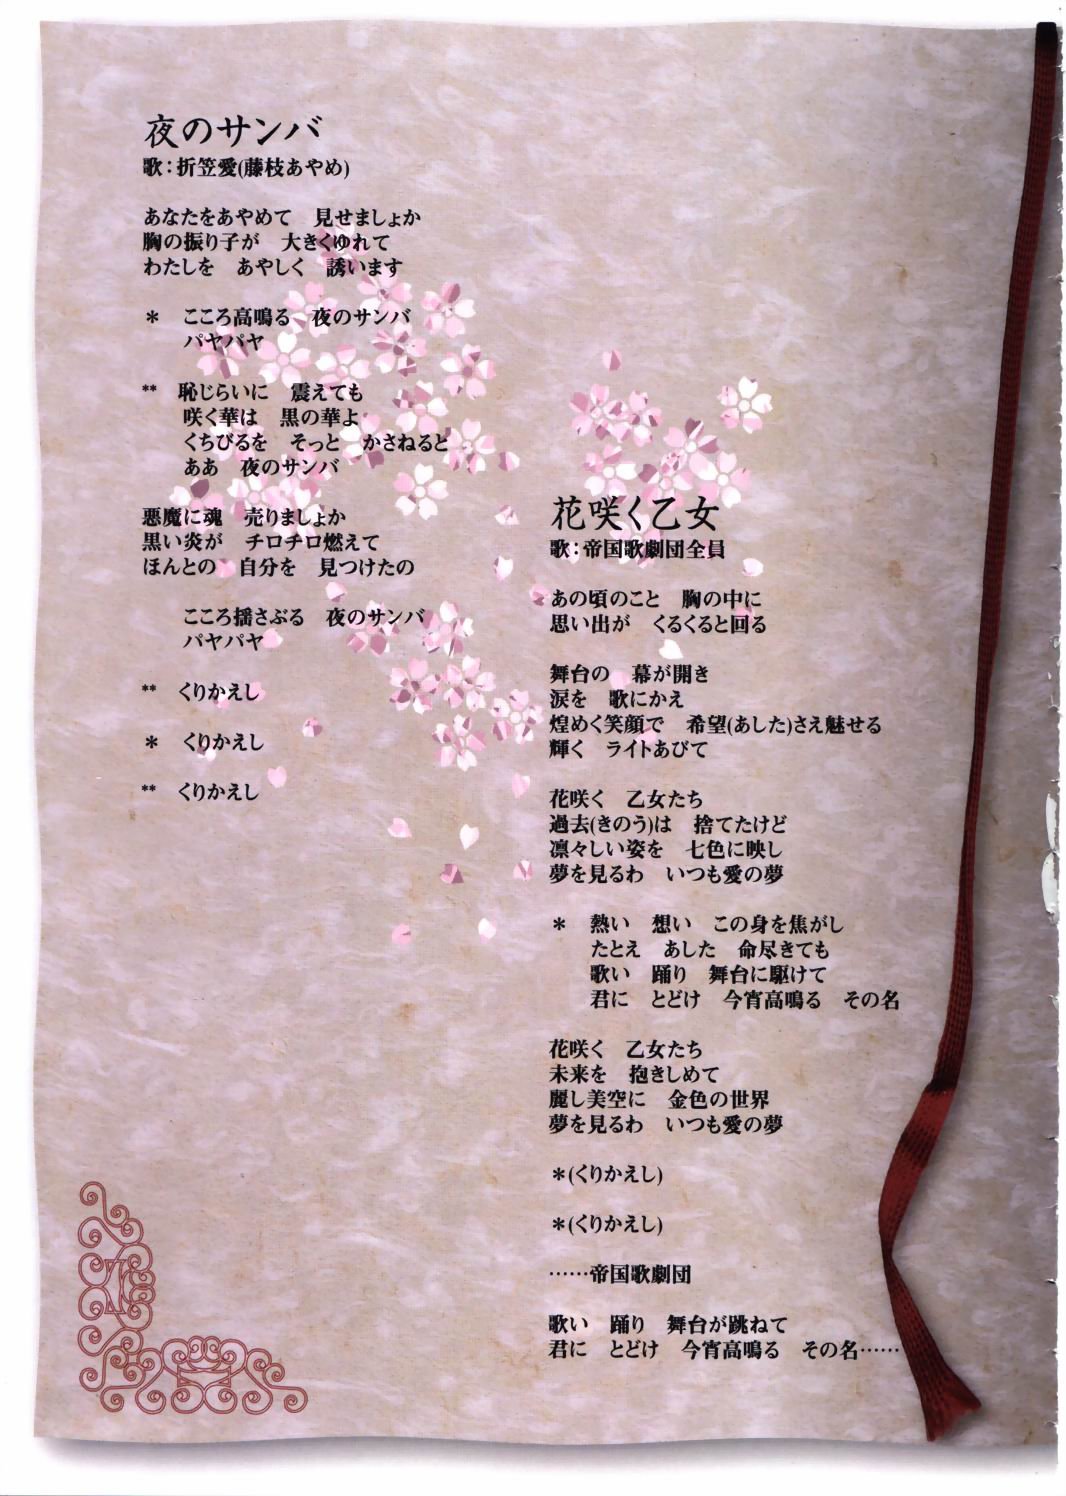 夜のサンバ
歌：折笠愛(藤枝あやめ)
あなたをあやめて　見せましょか
胸の振り子が　大きくゆれて
わたしを　あやしく　誘います
＊　こころ高鳴る　夜のサンバ
パヤパヤ
**　恥じらいに　震えても
咲く華は　黒の華よ
くちびるを　そっと　かさねると
ああ　夜のサンバ
悪魔に魂　売りましょか
黒い炎が　チロチロ燃えて
ほんとの　自分を　見つけたの
こころ揺さぶる　夜のサンバ
パヤパヤ
**　くりかえし
＊　くりかえし
**　くりかえし
花咲く乙女
歌：帝国歌劇団全員
あの頃のこと　胸の中に
思い出が　くるくると回る
舞台の　幕が開き
涙を　歌にかえ
煌めく笑顔で　希望(あした)さえ魅せる
輝く　ライトあびて
花咲く　乙女たち
過去(きのう)は　捨てたけど
凛々しい姿を　七色に映し
夢を見るわ　いつも愛の夢
＊　熱い　想い　この身を焦がし
たとえ　あした　命尽きても
歌い　踊り　舞台に駆けて
君に　とどけ　今宵高鳴る　その名
花咲く　乙女たち
未来を　抱きしめて
麗し美空に　金色の世界
夢を見るわ　いつも愛の夢
＊(くりかえし)
＊(くりかえし)
……帝国歌劇団
歌い　踊り　舞台が跳ねて
君に　とどけ　今宵高鳴る　その名……